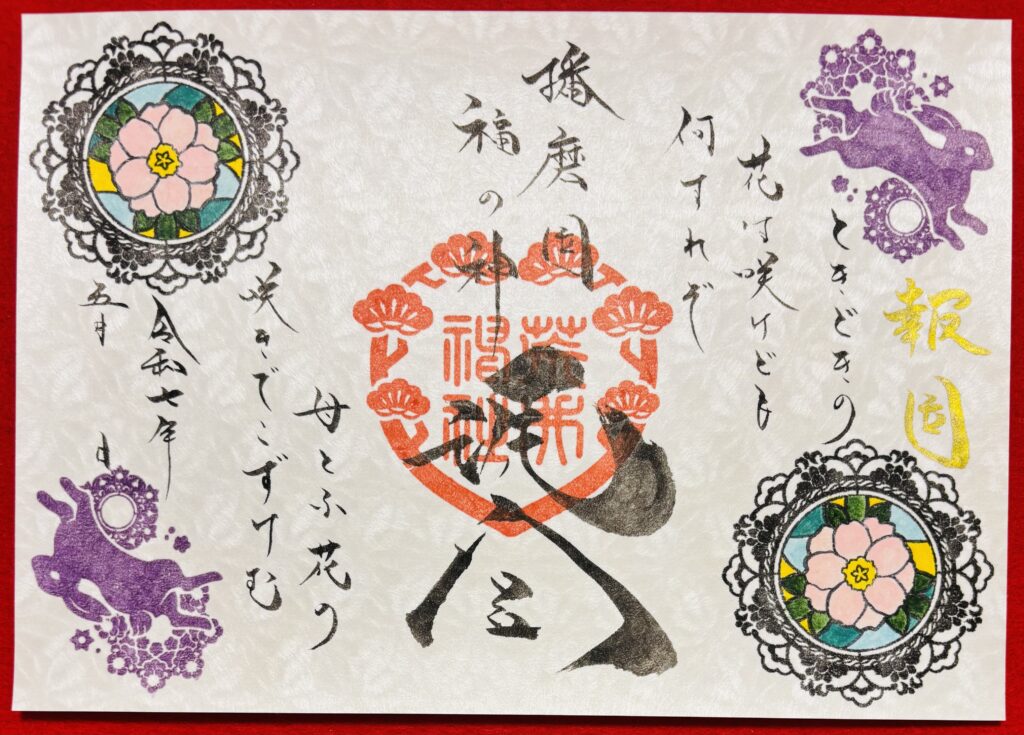 報国
ときどきの
花は咲けども
何すれぞ
播磨国
福の神
荒井
神社
母とふ花の
咲きでこずけむ
令和七年
五月 日